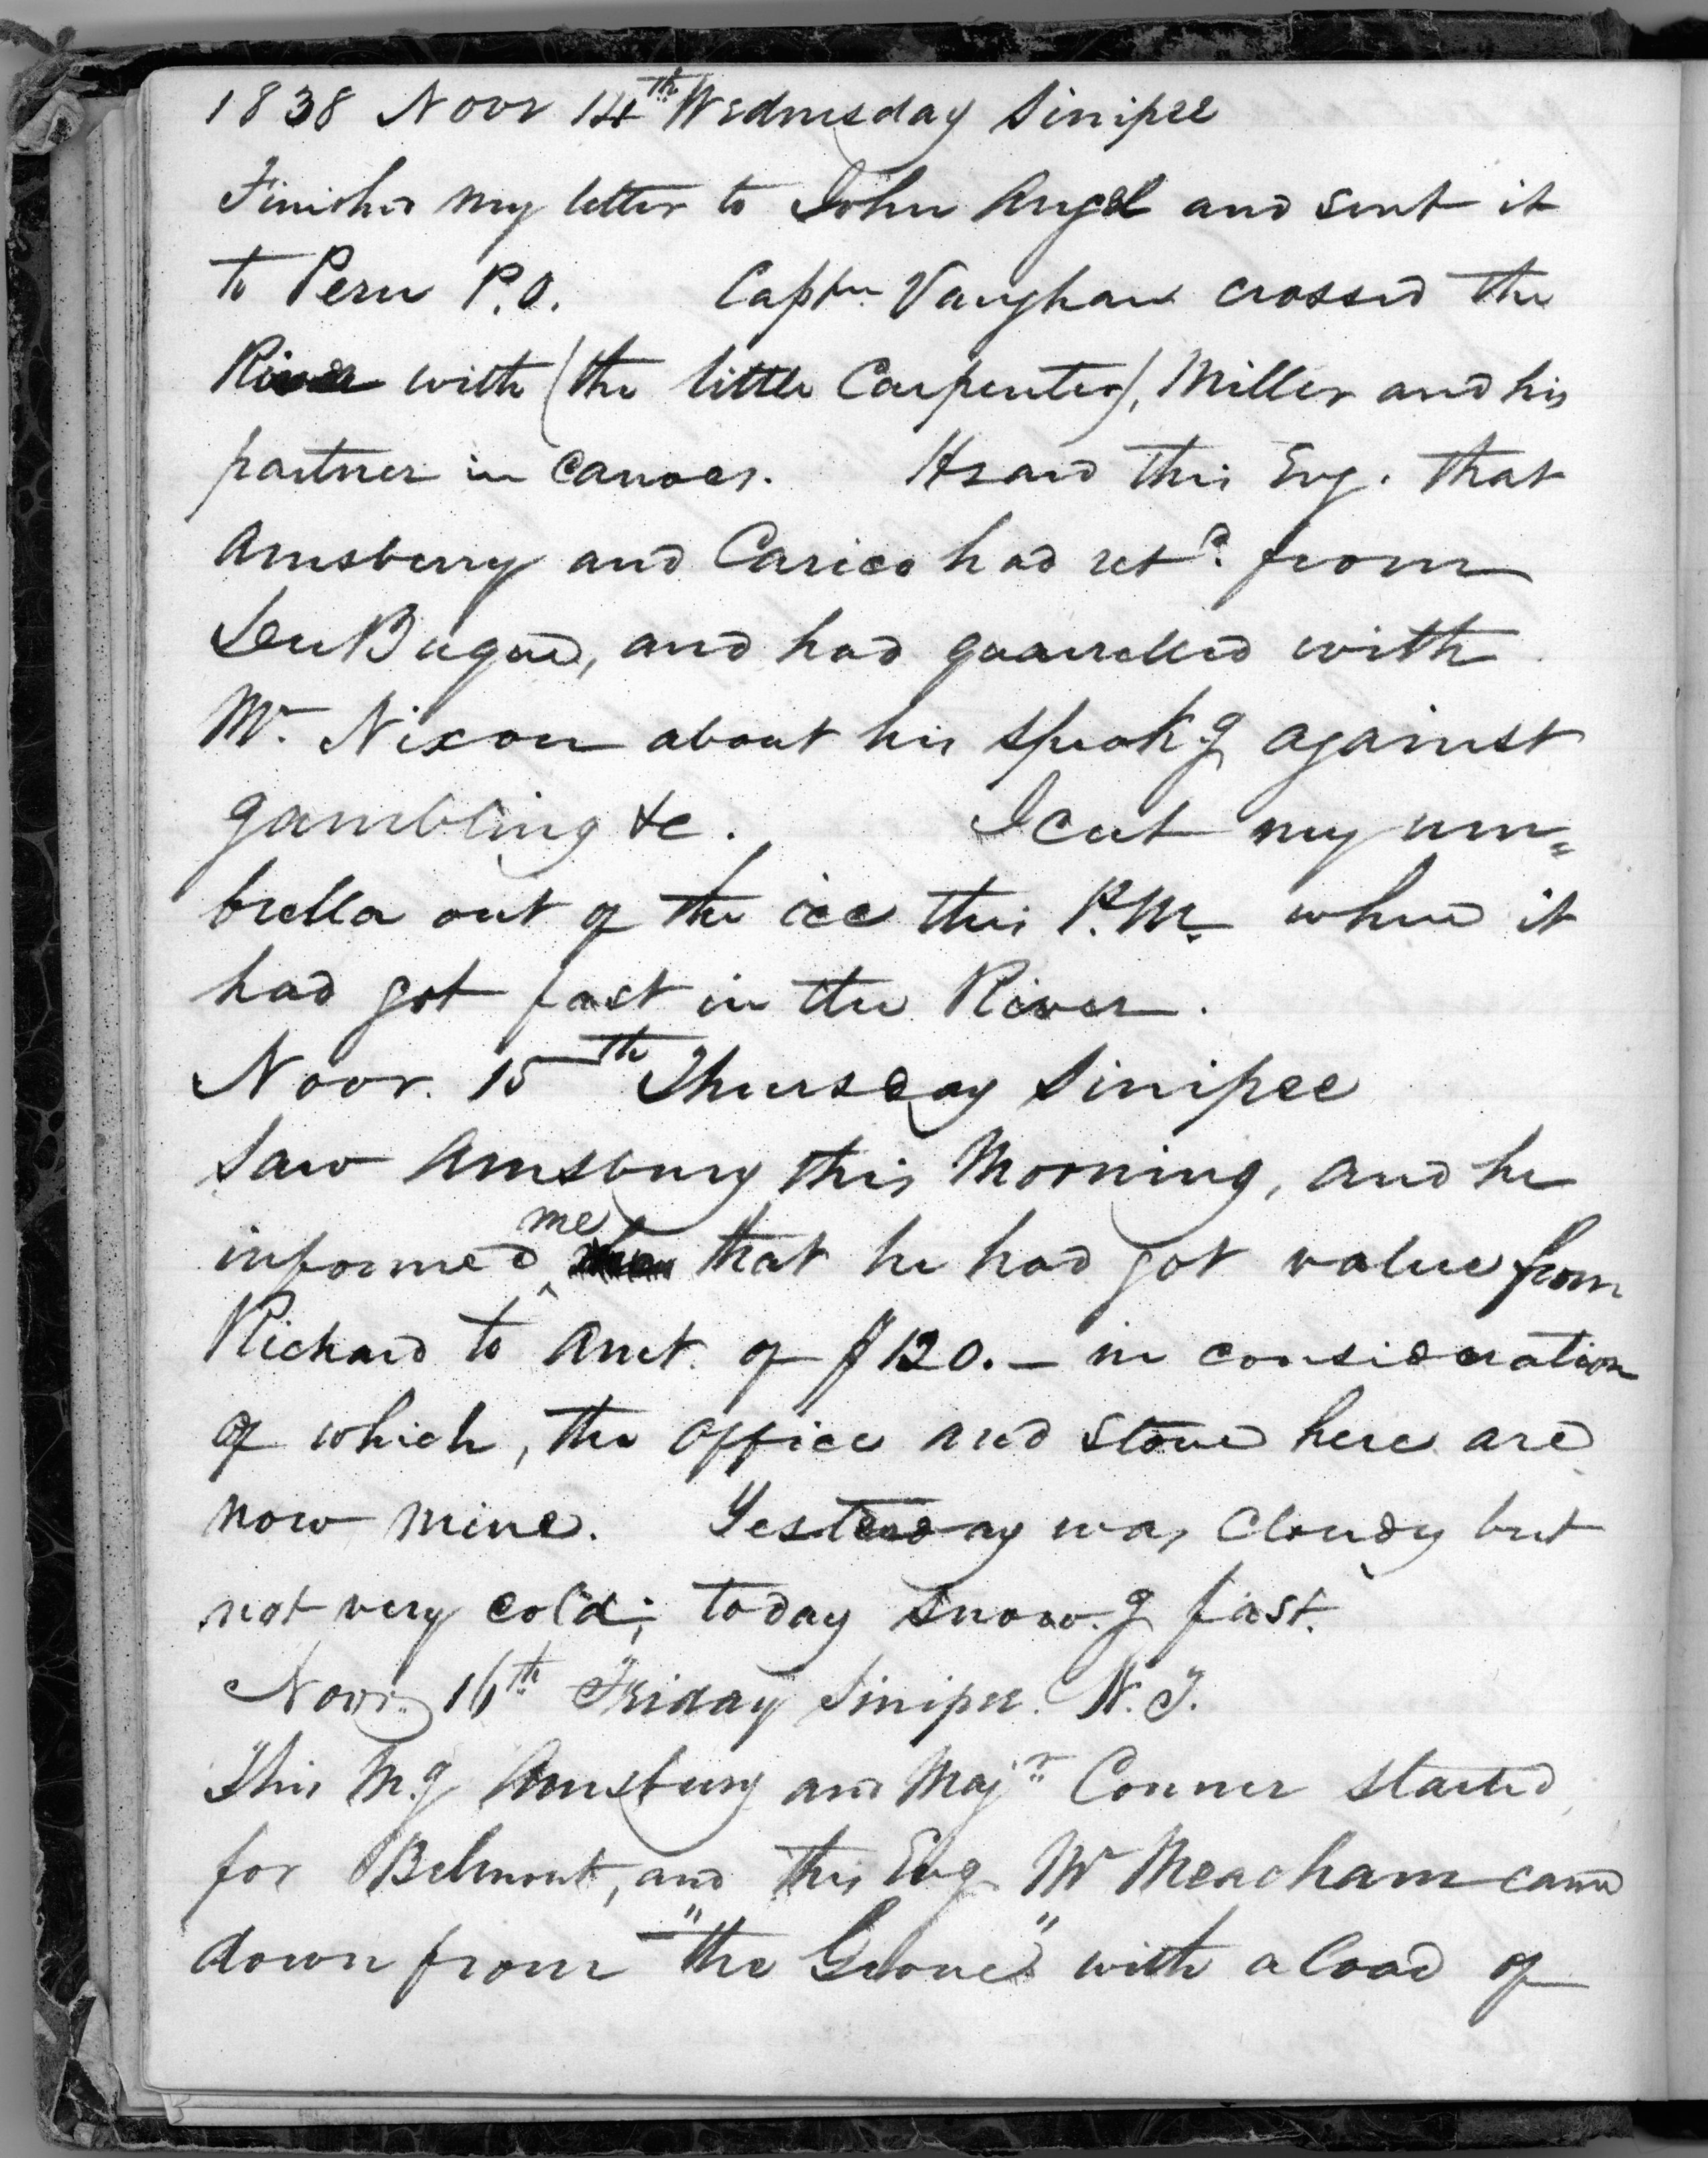 1838 Novr 14th Wednesday Sinipee
Finished my letter to John Angel and sent it
to Peru P.O. Captn Vaughan crossed the
River with (the little Carpenter), Miller and his
partner in Canoes. Heard this Evg. that
Amsberry and Carico had retd. from
DeuBuque, and had quarrelled with
Mr. Nixon about his speakg against
gambling &c. I cut my um=
brella out of the ice this P.M. where it
had got fast in the River.
Novr. 15th Thursday Sinipee
Saw Amsburg this Morning, and he
informed me that he had got value from
Richard to Amt. of $120.– in consideration
of which, the office and stove here are
now mine. Yesterday was Cloudy but
not very cold; today snow.g fast.
Novr. 16th Friday Sinipee. W.T.
This M.g Amsburg and Majr. Conner started
for Belmont, and this Evg Mr Meacham came
down from "the Grove" with a load of